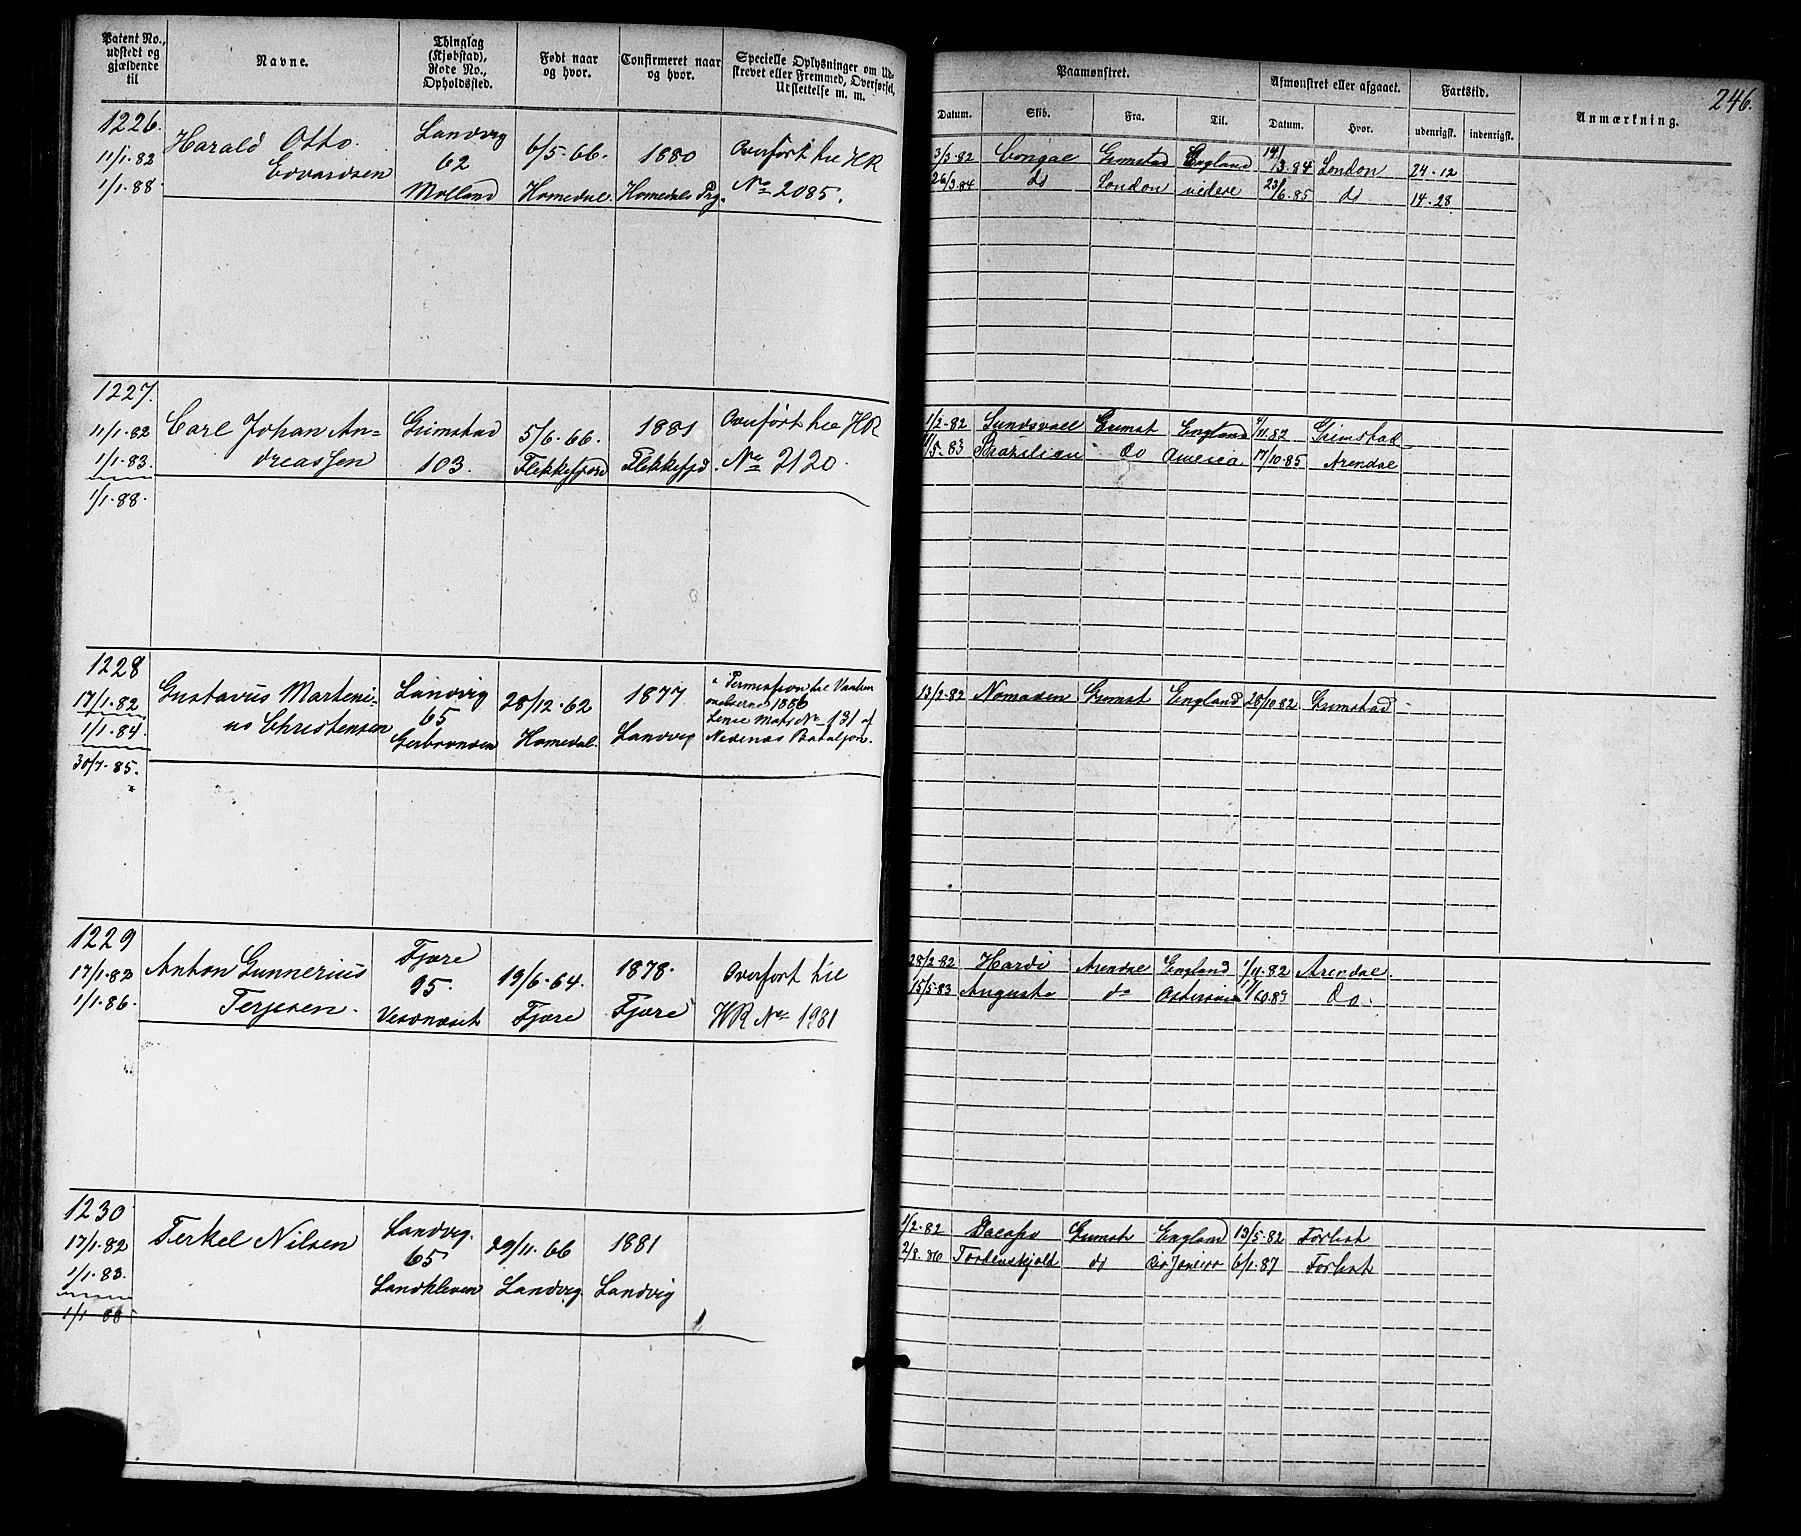 Patent No., udstedt og gjældende til
Navne.
Thinglag (Kjøbstad), Rode No., Opholdssted.
Født naar og hvor.
Confirmeret naar og hvor.
Specielle Oplysninger om Udskrevet eller Fremmed, Overførsel, Udslettelse m. m.
Paamønstret.
Afmønstret eller afgaaet.
Fartstid.
Anmærkning.
246.
Datum.
Skib.
Fra.
Til.
Datum.
Hvor.
udenrigsk.
indenrigsk.
1226.
11/1·82
1/1·88
Harald Otto
Edvardsen
Landvig
62
Molland
6/5·66.
Homedal.
1880
Homedals Prg.
Overført til HR
No 2085.
3/3·82 Grimstad England 14/3·84 London 24·12
26/3·84 do London videre 23/6·85 do 14·28
1227.
11/1·82
1/1·83.
1/1·88.
Carl Johan An=
dreassen
Grimstad
103.
5/6·66.
Flekkefjord
1881
Flekkefjd
Overført til HR
No 2120.
1/2·82 Sundsvall Grimst England /11·82 Grimstad
/5·83 Brazilian do America 17/10·85 Arendal
1228
17/1·82
1/1·84.
30/7·85.
Gustavus Marteni=
us Christensen
Landvig
65
28/12·62
Homedal.
1877
Landvig
Permission til Vaaben
øvelserne 1886
Linie Mats No 131 af
Nedenæs Bataljon.
13/2·82 Nomaden Grimst England 28/10·82 Grimstad
1229
17/1·82
1/1·86.
Anton Gunnerius
Terjesen.
Fjære
95.
19/6·64.
Fjære
1878.
Fjære
Overført til
HR No 1981
28/2·82 Hardi Arendal England 1/11·82 Arendal
15/5·83 Augusta do do.
1230
17/1·82
1/1·83.
1/1·88
Terkel Nilsen
Landvig.
65
Landkleven
29/11·66
Landvig
1881
Landvig
1/2·82 Grimst England 13/5·82 Forbst
2/8·86 Tordenskjold do Rio Janeiro 6/1·87 Forbst